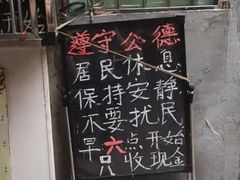 遵守公德
居民休息
保持安静
不要扰民
早六点开始
只收现金